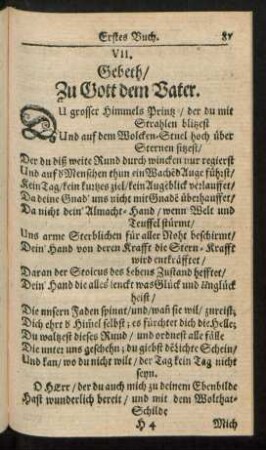 Erstes Buch. 87
VII.
Gebeth/
Zu Gott dem Vater.
DU grosser Himmels Printz/ der du mit
Strahlen blitzest
Und auf dem Wolcken-Stuel hoch über
Sternen sitzest/
Der du diß weite Rund durch wincken nur regierst
Und auf d'Menschen thun ein Wachēd Aug führst/
Kein Tag/ kein kurtzes ziel/ kein Augēblick verlauffet/
Da deine Gnad' uns nicht mit Gnadē überhauffet/
Da nicht dein' Almacht-Hand/ wenn Welt und
Teuffel stürmt/
Uns arme Sterblichen für aller Noht beschirmt/
Dein' Hand von deren Krafft die Stern-Krafft
wird entkräfftet/
Daran der Stoicus des Lebens Zustand hefftet/
Dein' Hand die alles lenckt was Glück und Unglück
heist/
Die unsern Faden spinat/ und/ wañ sie wil/ zureist;
Dich ehrt d' Him̃el selbst; es fürchtet dich die Helle;
Du waltzest dieses Rund/ und ordnest alle fälle
Die unter uns geschehn; du giebst dē lichte Schein/
Und kan/ wo du nicht wilt/ der Tag kein Tag nicht
seyn.
O HErr/ der du auch mich zu deinem Ebenbilde
Hast wunderlich bereit/ und mit dem Wolthat-
Schilde
H 4 Mich